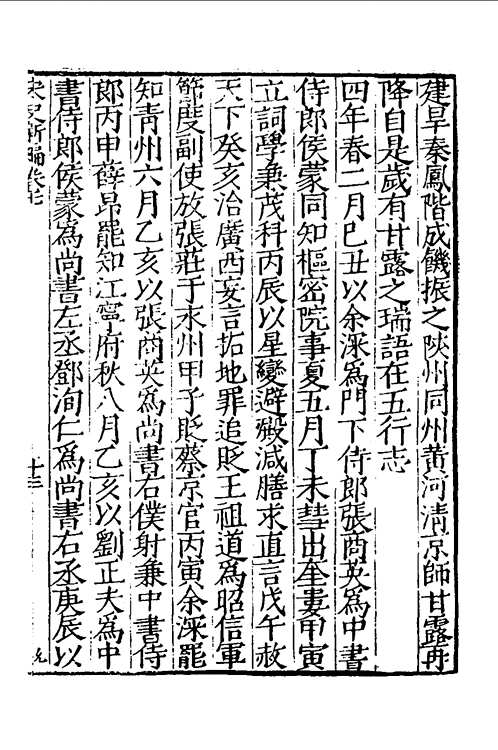 建旱秦鳳階成饑振之陜州同州黃河清京師甘露再
降自是歲有甘露之瑞語在五行志
四年春二月己丑以余深為門下侍郎張商英為中書
侍郎侯蒙同知樞密院事夏五月丁未彗出奎婁甲寅
立詞學兼茂科丙辰以星變避殿減膳求直言戊午赦
天下癸亥治廣西妄言拓地罪追貶王祖道為昭信軍
節度副使放張莊于永州甲子貶蔡京官丙寅余深罷
知青州六月乙亥以張商英為尚書右僕射兼中書侍
郎丙申薛昂罷知江寧府秋八月乙亥以劉正夫為中
書侍郎侯蒙為尚書左丞鄧洵仁為尚書右丞庚辰以
宋史新編卷七
十三